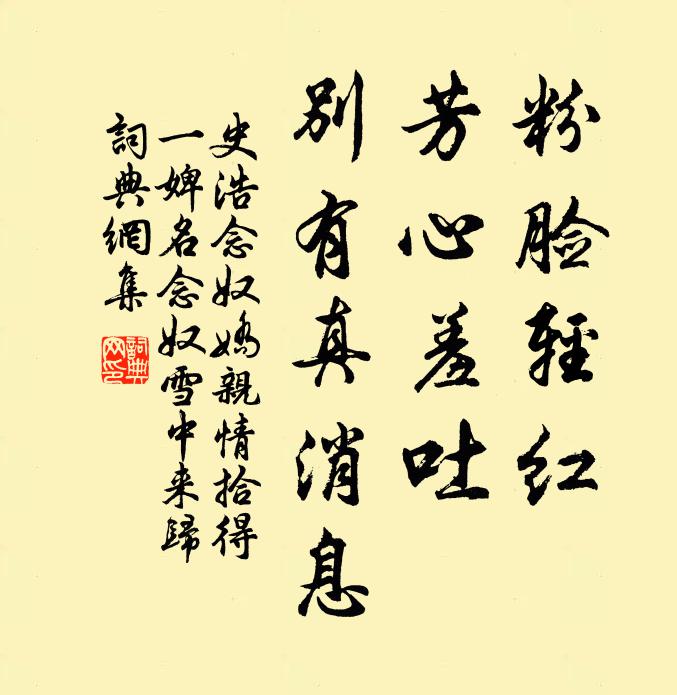 粉脸輕红
芳心羞吐
别有真消息
史浩念奴嬌親情拾得
一婢名念奴雪中来歸
詞典網集
詞典網印